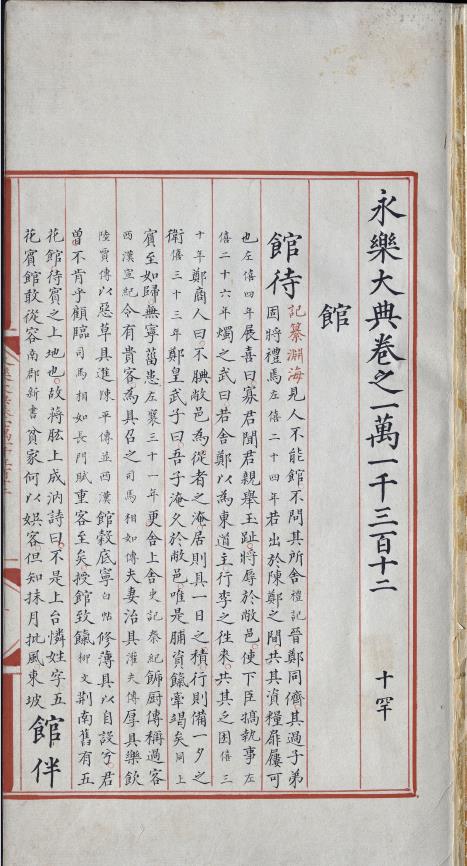 永樂大典卷之一萬一千三百十二　十罕
館
館待記纂淵海見人不能館不問其所舍禮記晉鄭同儕其過子弟
固將禮焉左僖二十四年若出於陳鄭之間共其資糧屝屨可
也左僖四年展喜曰寡君聞君親舉玉趾將辱於敝邑使下臣犒執事左
僖二十六年燭之武曰若舍鄭以為東道主行李之徃來共其乏困僖三
十年鄭商人曰不腆敝邑為從者之淹居則具一日之積行則備一夕之
衛僖三十三年鄭皇武子曰吾子淹久於敝邑唯是脯資餼牽竭矣同上
賓至如歸無寧菑患左襄三十一年更舍上舍史記秦紀飾廚傳稱過客
西漢宣紀令有貴客為具召之司馬相如傳夫妻治具灌夫傳厚具樂飲
陸賈傳以惡草具進陳平傳並西漢館穀底寧白帖修薄具以自設兮君
曽不肯乎顧臨司馬相如長門賦重客至矣授館致餼柳文荆南舊有五
花館待賓之上地也故蔣肱上成汭詩曰不是上台憐姓字五
花賓館敢從容南郡新書貧家何以娯客但知抹月批風東坡館伴